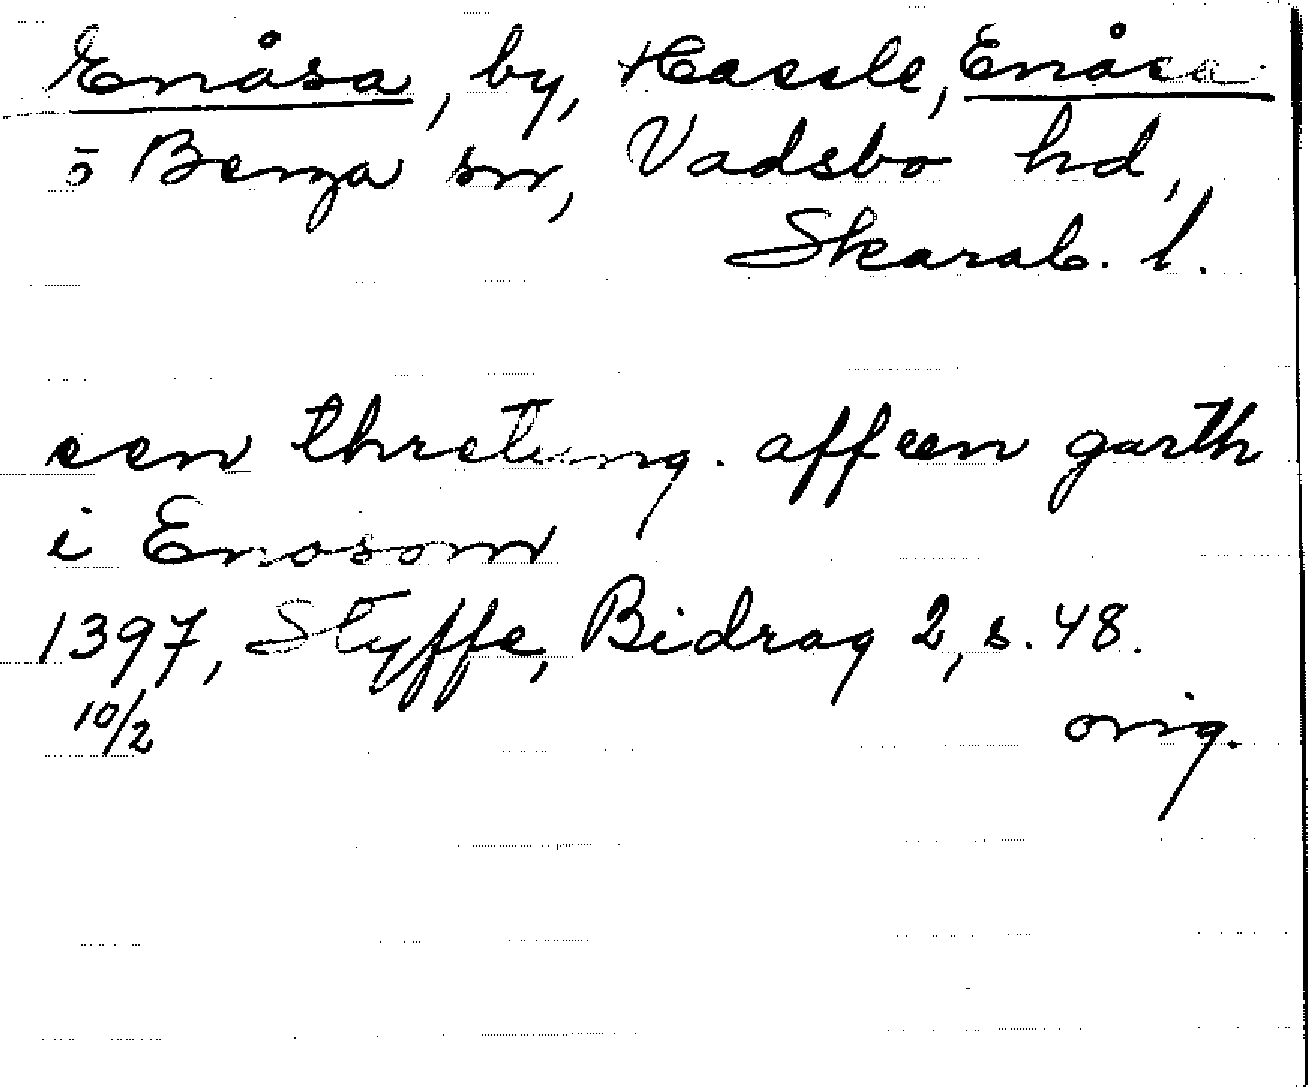 Enåsa, by, Hassle, Enåsa
ō Berga sn, Vadsbo hd,
Skarab. l.
een thretiung. aff een garth
i Enosom
1397, Styffe, Bidrag 2, s. 48.
10/2 orig.